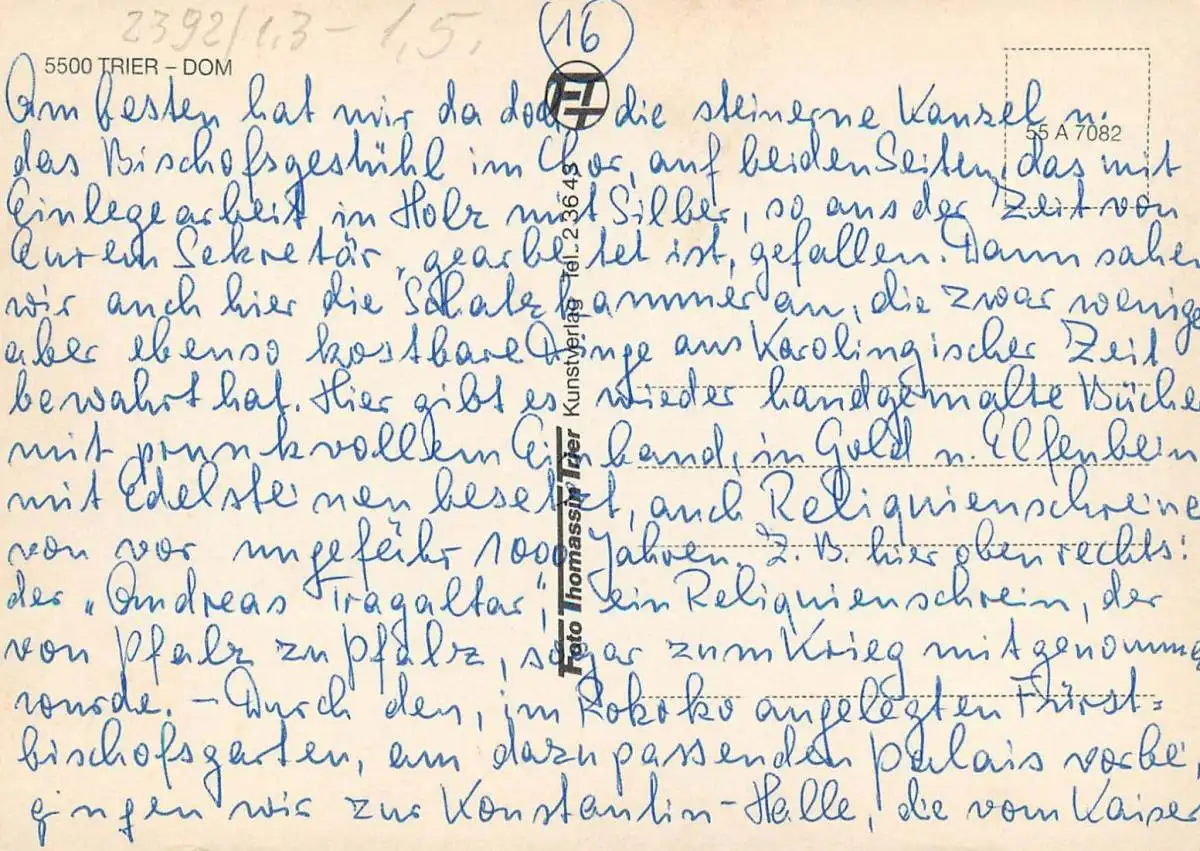 2392/1,3 - 1,5.
16
5500 TRIER – DOM
55 A 7082
Am besten hat mir da doch die steinerne Kanzel u.
das Bischofsgestühl im Chor, auf beiden Seiten, das mit
Einlegearbeit in Holz mit Silber, so aus der Zeit von
Eurem Sekretär, gearbeitet ist, gefallen. Dann sahen
wir auch hier die Schatzkammer an, die zwar wenige
aber ebenso kostbare Dinge aus Karolingischer Zeit
bewahrt hat. Hier gibt es wieder handgemalte Bücher
mit prunkvollem Einband, in Gold u. Elfenbein
mit Edelsteinen besetzt, auch Religuienschreine
von vor ungefähr 1000 Jahren. Z. B. hier oben rechts:
der „Andreas Tragaltar", ein Religuienschrein, der
von Pfalz zu Pfalz, sogar zum Krieg mitgenommen
wurde. – Durch den, im Rokoko angelegten Fürst=
bischofsgarten, am dazu passenden Palais vorbei,
gingen wir zur Konstantin-Halle, die vom Kaiser
Foto Thomassin Trier Kunstverlag Tel. 23643